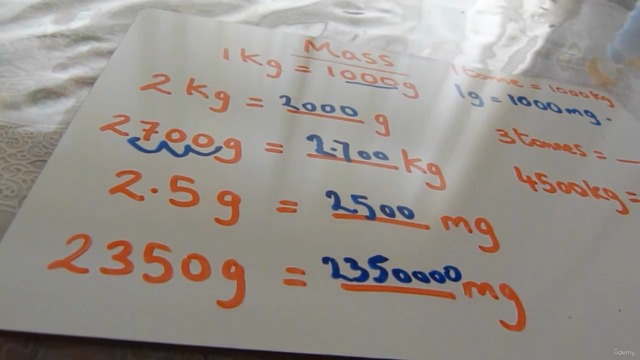 Mass
1Kg = 1000g
2Kg = 2000 g
2700g = 2.700 Kg
2.5g = 2500 mg
2350g = 2350000 mg
1tonne = 1000kg
1g = 1000mg.
3tonnes =
4500kg =
Udemy